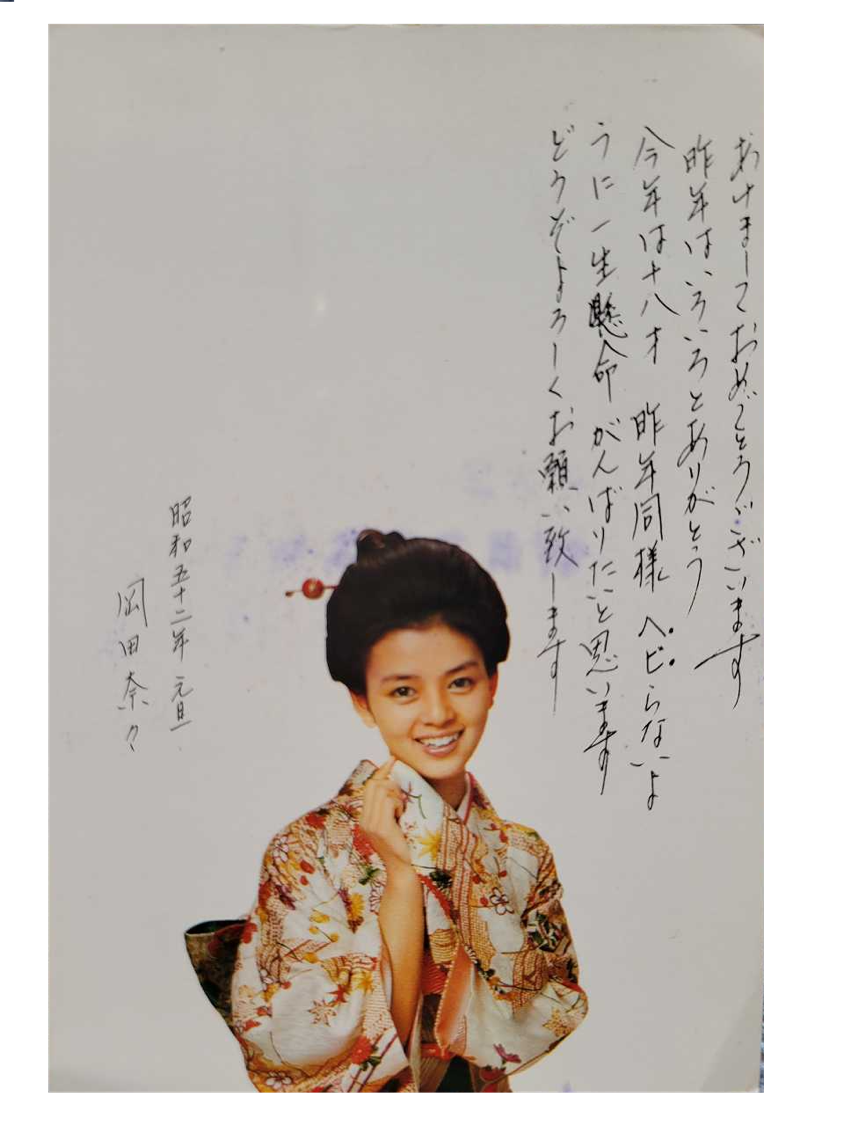 あけましておめでとうございます
昨年はいろいろとありがとう
今年は十八才 昨年同様 ヘビらないよ
うに一生懸命 がんばりたいと思います
どうぞよろしくお願い致します
昭和五十二年 元旦
岡田奈々